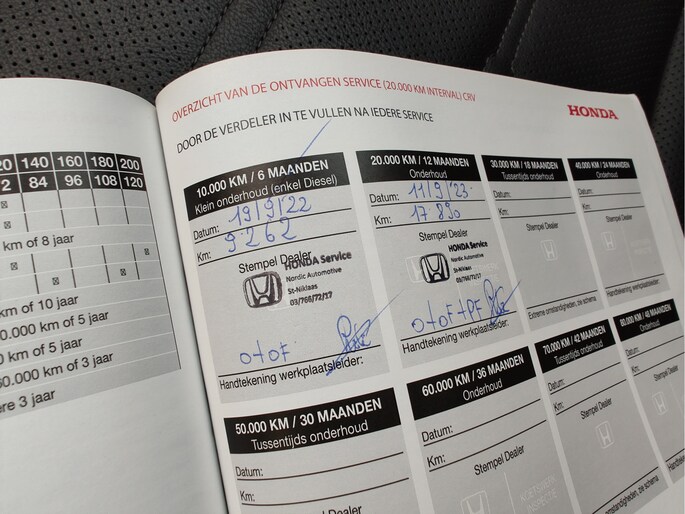 20 140 160 180 200
2 84 96 108 120
km of 8 jaar
km of 10 jaar
0.000 km of 5 jaar
0 km of 5 jaar
60.000 km of 3 jaar
ere 3 jaar
OVERZICHT VAN DE ONTVANGEN SERVICE (20.000 KM INTERVAL) CRV
HONDA
DOOR DE VERDELER IN TE VULLEN NA IEDERE SERVICE
10.000 KM / 6 MAANDEN
Klein onderhoud (enkel Diesel)
Datum: 19/9/'22
Km: 9262
Stempel Dealer
HONDA Service
Nordic Automotive
St-Niklaas
03/766/72/17
O+OF
Handtekening werkplaatsleider:
20.000 KM / 12 MAANDEN
Onderhoud
Datum: 11/9/'23
Km: 17 890
Stempel Dealer
HONDA Service
Nordic Automotive
St-Niklaas
03/766/72/17
O+OF+PF
Handtekening werkplaatsleider:
30.000 KM / 18 MAANDEN
Tussentijds onderhoud
Datum:
Km:
Stempel Dealer
Extreme omstandigheden, zie schema
40.000 KM / 24 MAANDEN
Onderhoud
Datum:
Km:
Stempel Dealer
Handtekening werkplaatsleider:
50.000 KM / 30 MAANDEN
Tussentijds onderhoud
Datum:
Km:
Dealer
60.000 KM / 36 MAANDEN
Onderhoud
Datum:
Km:
Stempel Dealer
70.000 KM / 42 MAANDEN
Tussentijds onderhoud
Datum:
Km:
Stempel Dealer
omstandigheden, zie schema
80.000 KM / 48 MAANDEN
Onderhoud
Datum:
Km:
Stempel Dealer